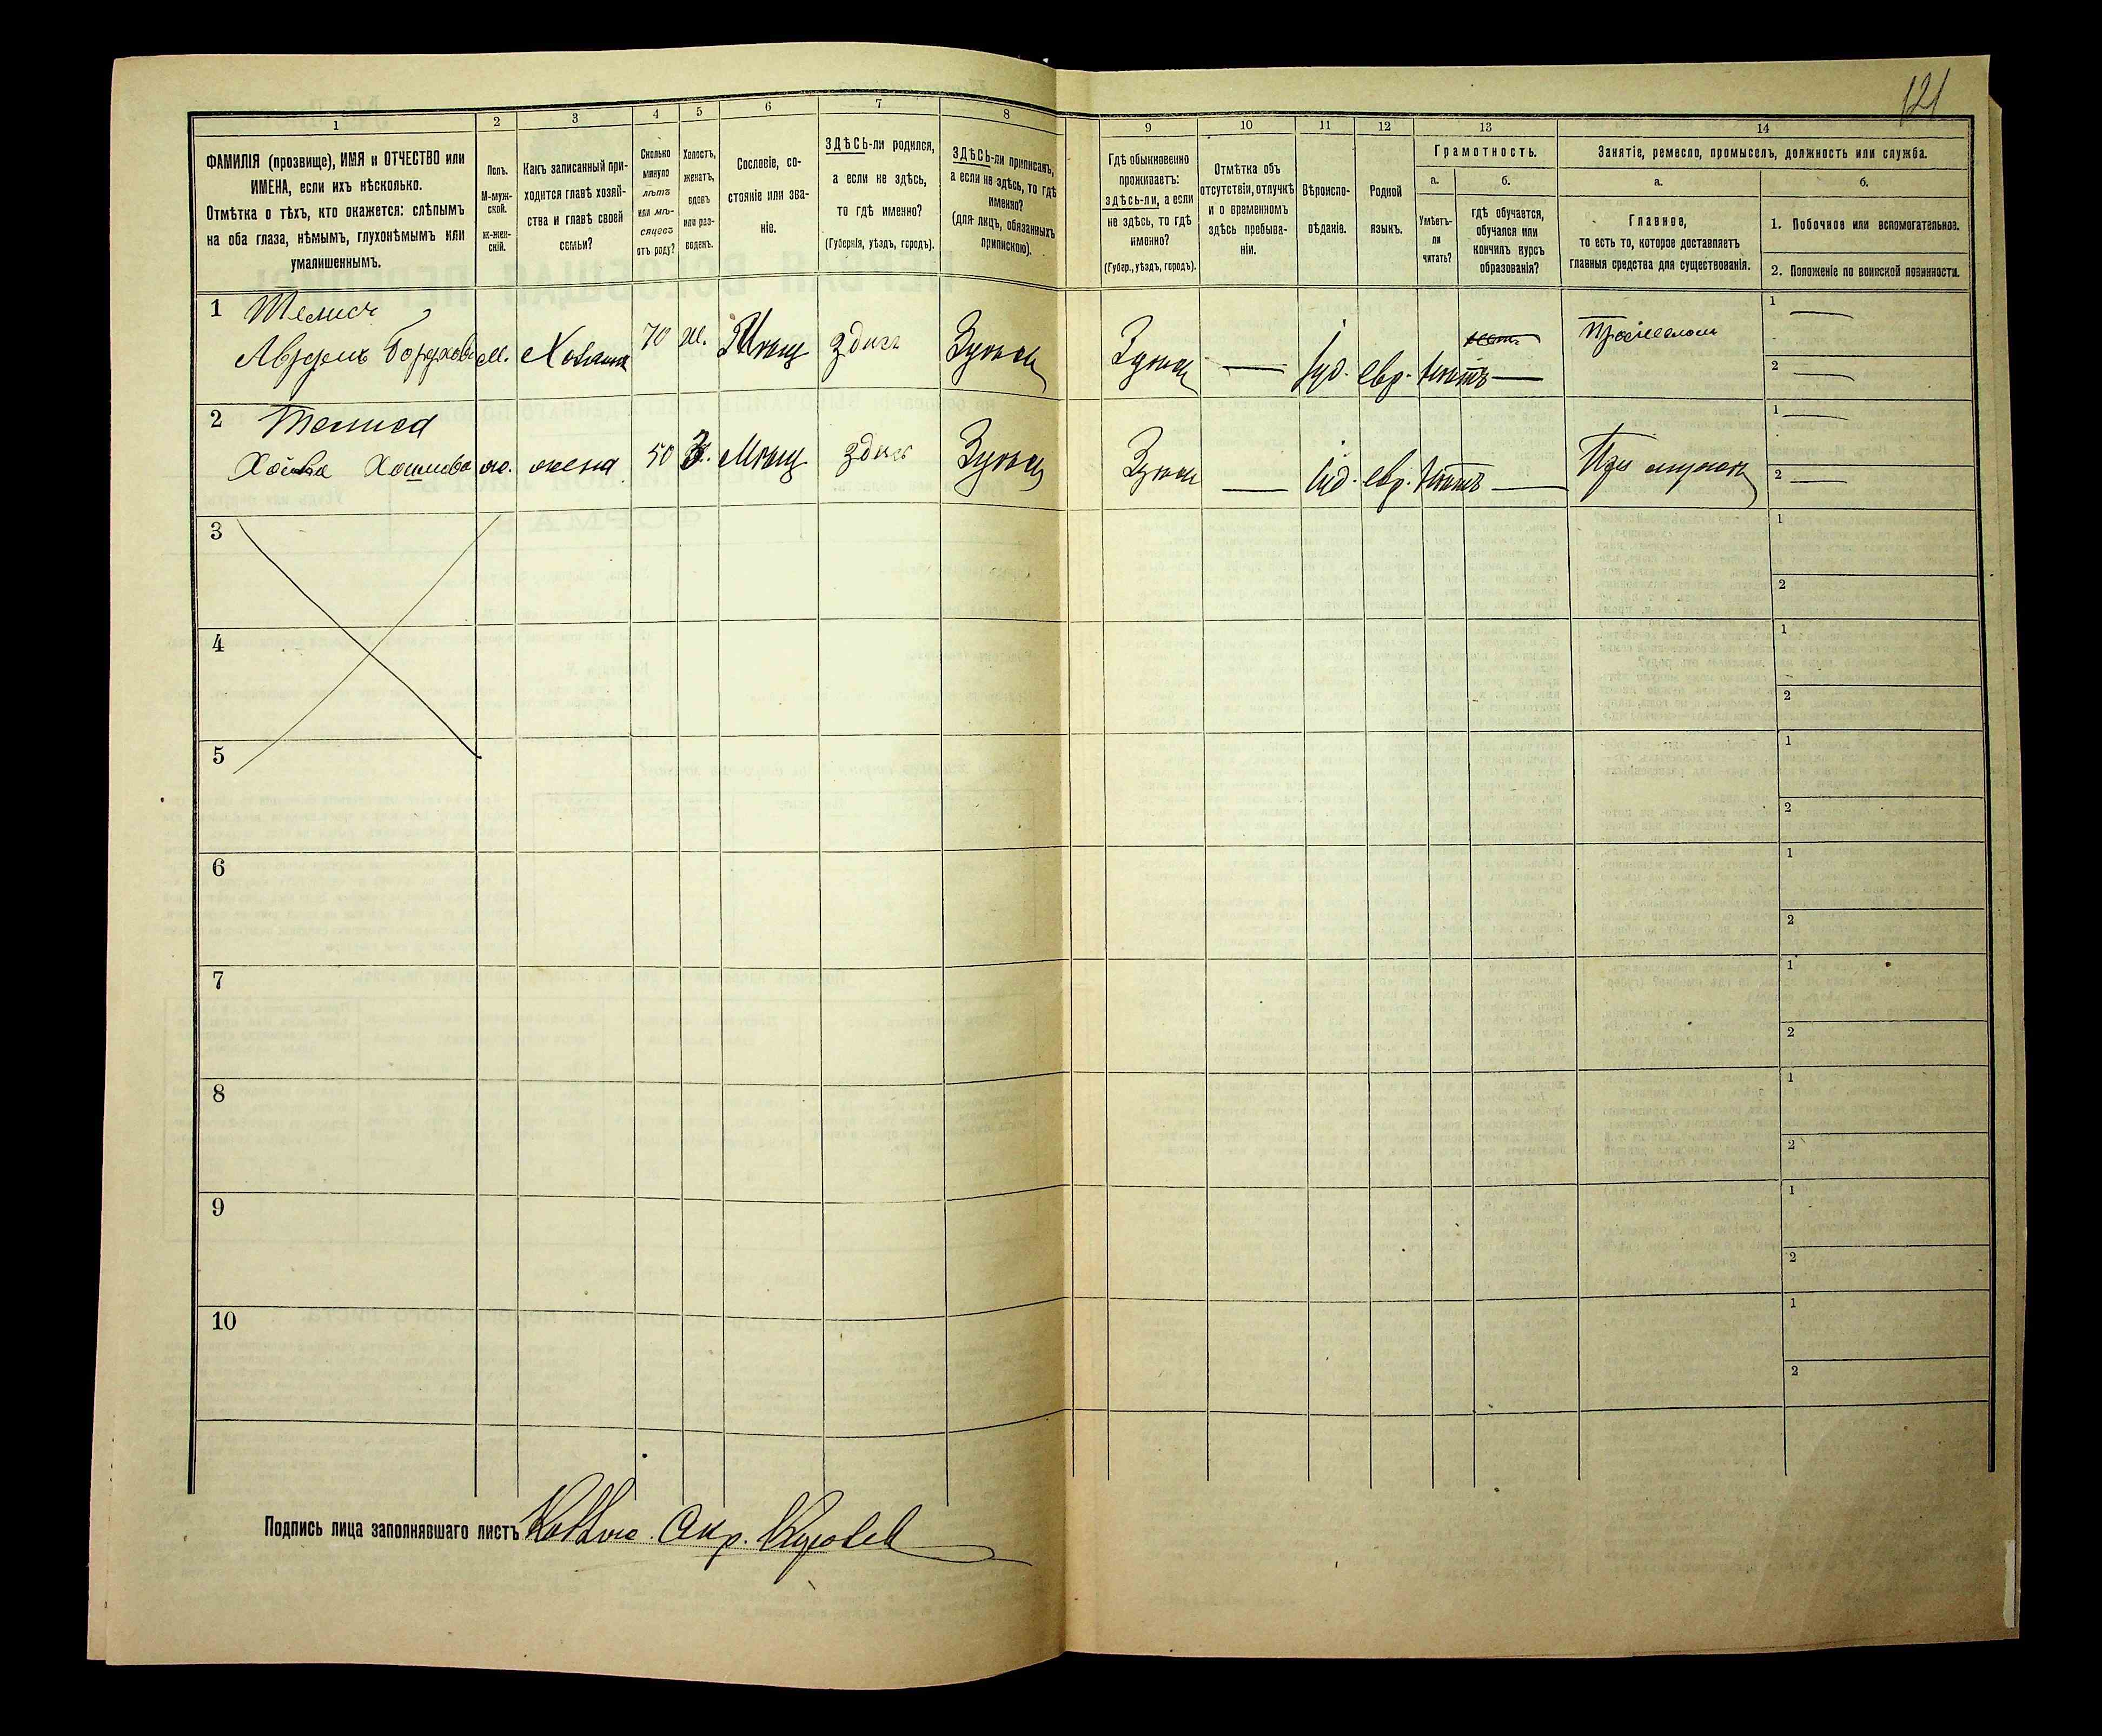 121
1
2
3
4
5
6
7
8
9
10
11
12
13
14
ФАМИЛІЯ (прозвище), ИМЯ и ОТЧЕСТВО или
ИМЕНА, если ихъ нѣсколько.
Отмѣтка о тѣхъ, кто окажется: слѣпымъ
на оба глаза, нѣмымъ, глухонѣмымъ или
умалишеннымъ.
Полъ.
М-муж-
ской.
ж-жен-
скій.
Какъ записанный при-
ходится главѣ хозяй-
ства и главѣ своей
семьи?
Сколько
минуло
лѣтъ
или мѣ-
сяцевъ
отъ роду?
Холостъ,
женатъ,
вдовъ
или раз-
веденъ.
Сословіе, со-
стояніе или зва-
ніе.
ЗДѢСЬ-ли родился,
а если не здѣсь,
то гдѣ именно?
(Губернія, уѣздъ, городъ).
ЗДѢСЬ-ли приписанъ,
а если не здѣсь, то гдѣ
именно?
(для лицъ, обязанныхъ
припискою).
Гдѣ обыкновенно
проживаетъ:
здѣсь-ли, а если
не здѣсь, то гдѣ
именно?
(Губер., уѣздъ, городъ).
Отмѣтка объ
отсутствіи, отлучкѣ
и о временномъ
здѣсь пребыва-
ніи.
Вѣроиспо-
вѣданіе.
Родной
языкъ.
Грамотность.
а.
Умѣетъ-
ли
читать?
б.
гдѣ обучается,
обучался или
кончилъ курсъ
образованія?
Занятіе, ремесло, промыселъ, должность или служба.
а.
Главное,
то есть то, которое доставляетъ
главныя средства для существованія.
б.
1. Побочное или вспомогательное.
2. Положеніе по воинской повинности.
1
м. Хозяинъ 70 ж. Мѣщ здѣсь
іуд. евр. нѣтъ —
1 —
2 —
2
ж. жена 50 З. Мѣщ здѣсь
— іуд. евр. нѣтъ — При мужѣ
1 —
2 —
3
1
2
4
1
2
5
1
2
6
1
2
7
1
2
8
1
2
9
1
2
10
1
2
Подпись лица заполнявшаго листъ